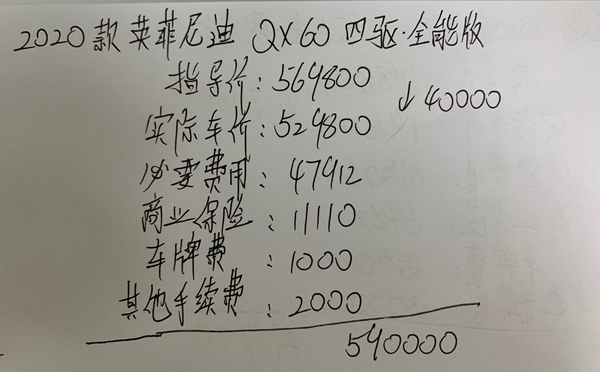 2020款英菲尼迪 QX60 四驱·全能版
指导价：569800
↓40000
实际车价：529800
必要费用：47912
商业保险：11110
车牌费：1000
其他手续费：2000
590000